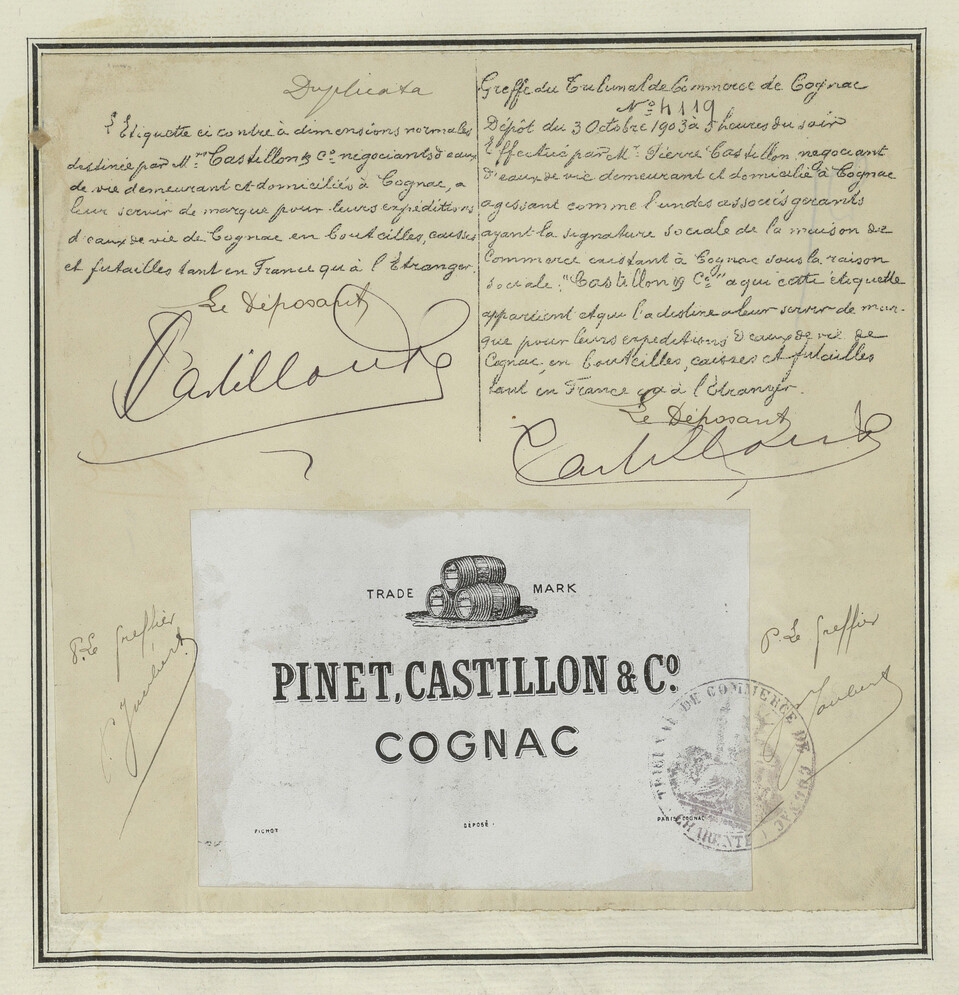 Duplicata
L'Etiquette ci contre à dimensions normales
destinée par M.rs Castillon & Co négociants d'eaux
de vie demeurant et domiciliés à Cognac, a
leur servir de marque pour leurs expéditions
d'eaux de vie de Cognac en bouteilles, caisses
et futailles tant en France qu'à l'Etranger.
Le Déposant
Castillon & Co
Greffe du Tribunal de Commerce de Cognac
No 4119
Dépôt du 3 Octobre 1903 à 5 heures du soir
Effectué par M.r Pierre Castillon, négociant
d'eaux de vie demeurant et domicilié à Cognac
agissant comme l'un des associés gérants
ayant la signature sociale de la maison de
Commerce existant à Cognac sous la raison
sociale: "Castillon & Co" a qui cette étiquette
appartient et qui l'a destine a leur servir de mar-
que pour leurs expéditions d'eaux de vie de
Cognac en bouteilles, caisses et futailles
tant en France qu'à l'Etranger.
Le Déposant
Castillon & Co
TRADE MARK
PINET, CASTILLON & Co.
COGNAC
FICHOT
DÉPOSÉ.
PARIS-COGNAC
P. Le greffier
P. Joubert
P. Le greffier
Joubert
TRIBUNAL DE COMMERCE DE COGNAC
CHARENTE